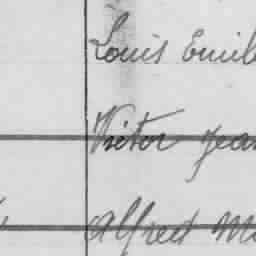 Louis Emile
Victor Jean
Alfred M